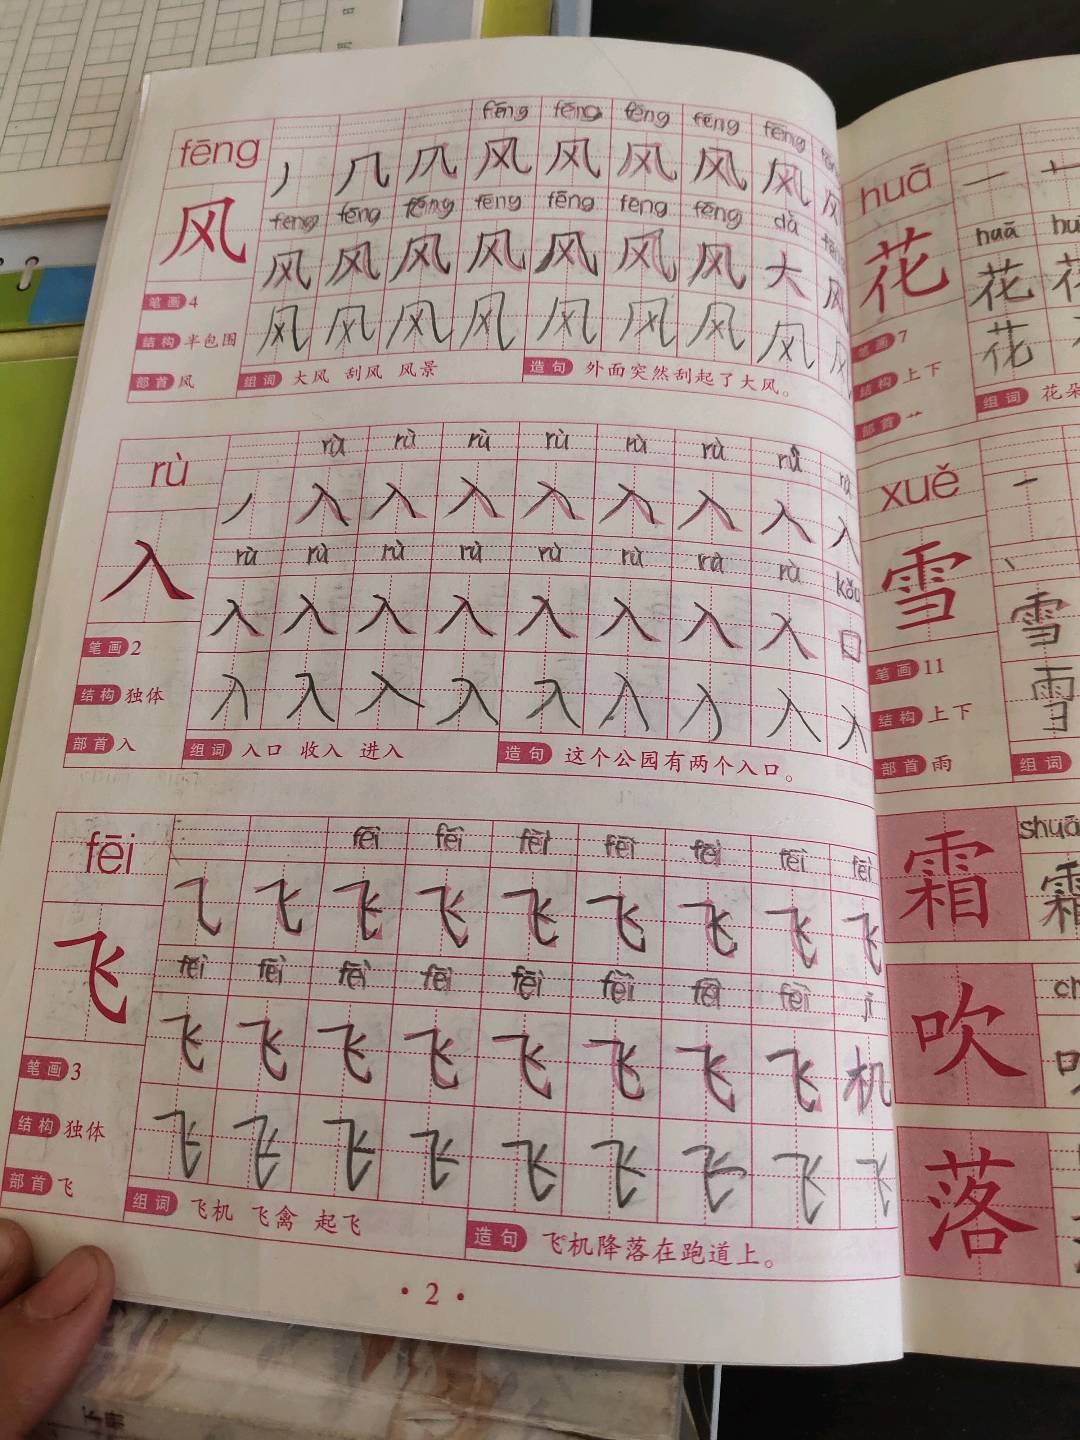 fēng fēng fēng fēng fēng
fēng 丿 几 凡 风 风 风 风 风 风
风 feng fēng fēng fēng fēng feng fēng dà
风 风 风 风 风 风 风 大 风
笔画 4
风 风 风 风 风 风 风 风 风
结构 半包围
部首 风 组词 大风 刮风 风景 造句 外面突然刮起了大风。
rù rù rù rù rù rù rù rù
rù 丿 入 入 入 入 入 入 入 入
入 rù rù rù rù rù rù rù rù kǒu
入 入 入 入 入 入 入 入 口
笔画 2
结构 独体 入 入 入 入 入 入 入 入 入
部首 入 组词 入口 收入 进入 造句 这个公园有两个入口。
fēi fēi fēi fēi fēi fēi fēi
fēi 飞 飞 飞 飞 飞 飞 飞 飞
飞 fēi fēi fēi fēi fēi fēi fēi fēi jī
飞 飞 飞 飞 飞 飞 飞 飞 机
笔画 3
结构 独体 飞 飞 飞 飞 飞 飞 飞 飞 飞
部首 飞 组词 飞机 飞禽 起飞 造句 飞机降落在跑道上。
·2·
huā 一
花 huā hu
花
笔画 7 花
结构 上下
部首 艹 组词 花朵
xuě 一
雪 丶
雪
笔画 11
结构 上下 雪
部首 雨 组词
霜 shuā
霜
吹 ch
落